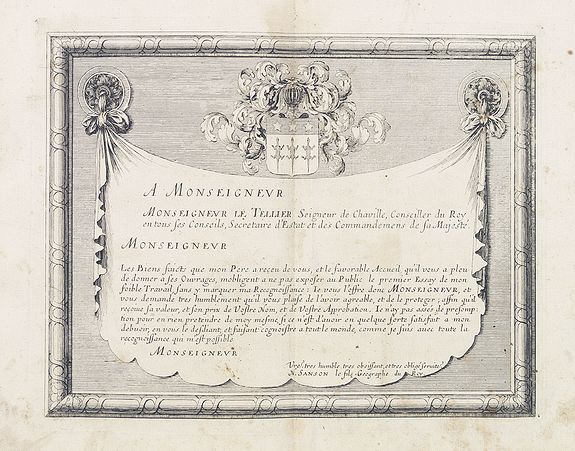 A MONSEIGNEVR
MONSEIGNEVR LE TELLIER Seigneur de Chaville, Conseiller du Roy
en tous ses Conseils, Secretaire d'Estat et des Commandemens de sa Majesté.
MONSEIGNEVR
Les Biens faicts que mon Pere a reçeu de vous, et le favorable Accueil, qu'il vous a pleu
de donner a ses Ouvrages, m'obligent a ne pas exposer au Public le premier Essay de mon
foible Travail, sans y marquer ma Recognoissance: Ie vous l'offre donc MONSEIGNEVR, et
vous demande tres humblement qu'il vous plaise de l'avoir agreable, et de le proteger; affin qu'il
reçoive sa valeur, et son prix de Vostre Nom, et de Vostre Approbation. Ie n'ay pas asses de presomp-
tion pour en rien pretendre de moy mesme, si ce n'est d'avoir en quelque sorte satisfait a mon
debvoir, en vous le desdiant, et faisant cognoistre a tout le monde, comme je suis avec toute la
recognoissance qui m'est possible.
MONSEIGNEVR
Vre. tres humble tres obeissant, et tres obligé
N. SANSON le fils Geographe du Roy.